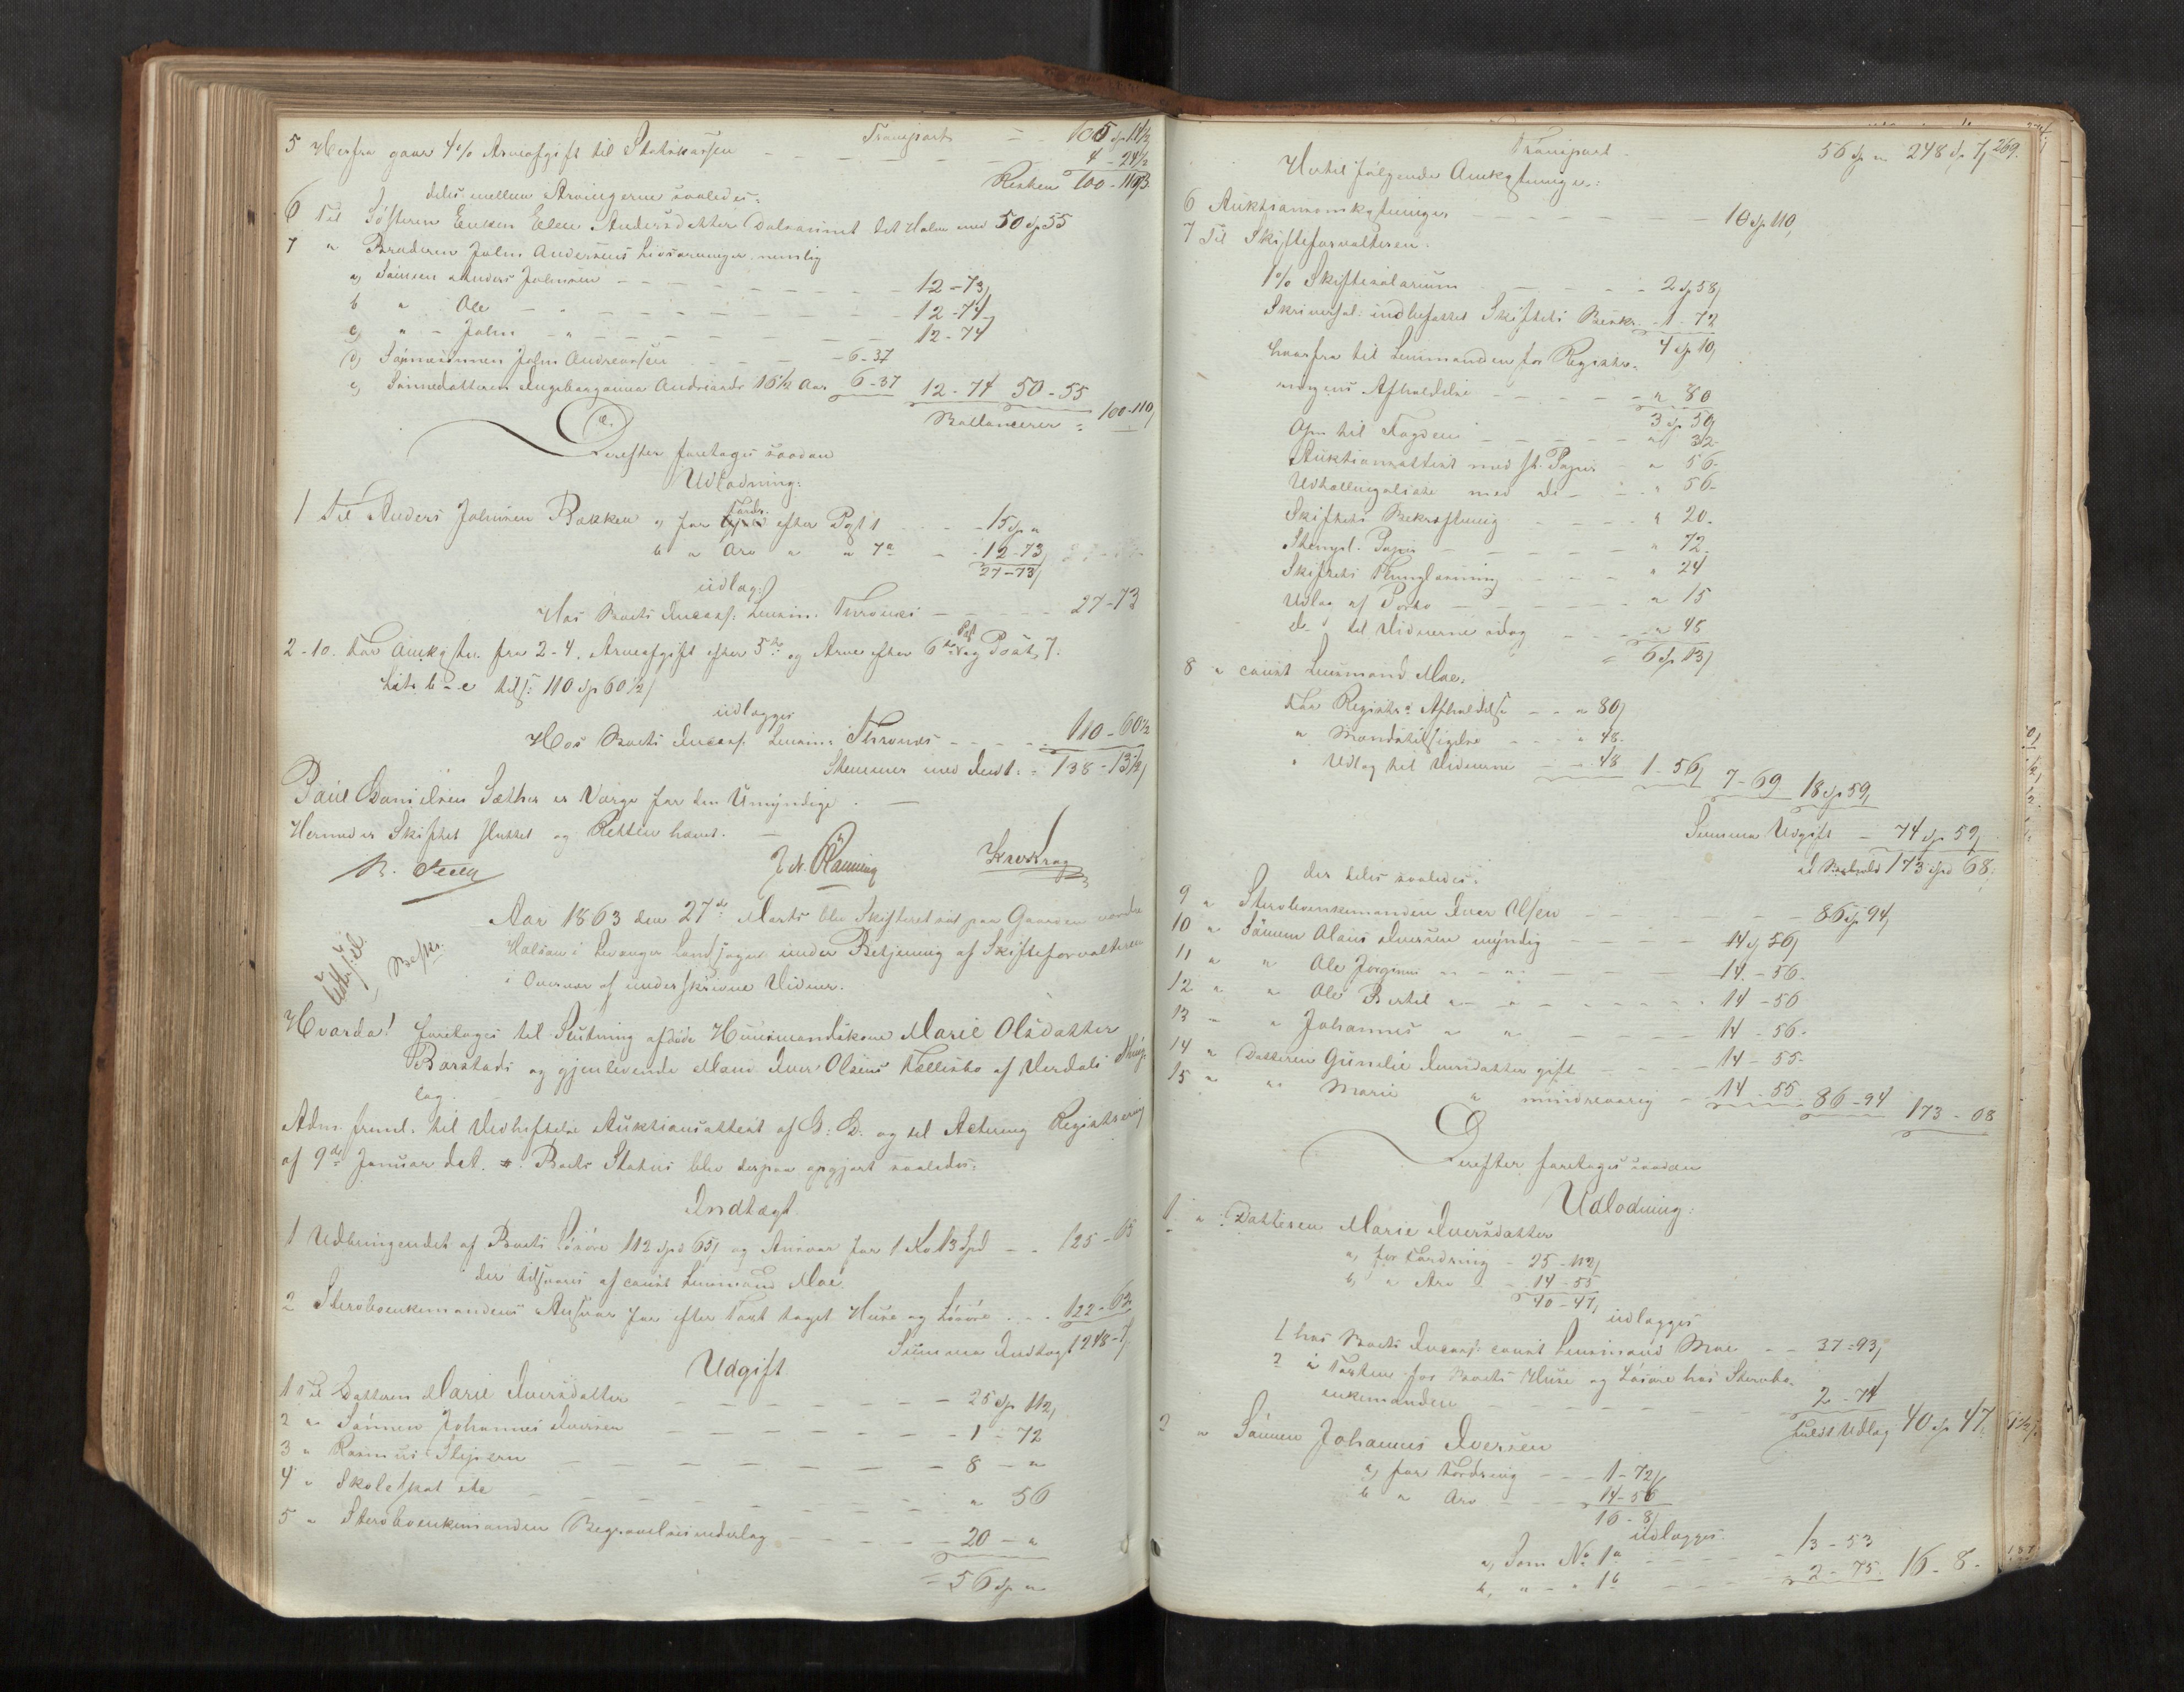 Transport 105 Sp 14½
5 Herfra gaar 4% Arveafgift til Statskassen 4 - 24½
Resten 100 - 110
deles mellem Arvingerne saaledes:
6 Til Søsteren Enken Elen Andersdatter Dalsaunet det Halve med 50 Sp 55
7 " Broderen John Andersens Livsarvinger nemlig
a, Sønnen Anders Johnsen 12 - 73
b " Ole " 12 - 74
c, " John " 12 - 74
d, Sønnesønnen John Andreassen 6 - 37
e, Sønnedatteren Ingeborganna Andreasd. 16½ Aar 6 - 37 12 - 74 50 - 55
Ballancerer = 100 - 110
Derefter foretoges saadan
Udlodning:
1 Til Anders Johnsen Bakken a, for Fordr. efter Pgt 1 15 Sp "
b " Arv " " 7a 12 - 73
27 - 73
udlag:
Hos Boets Incass: Lensm. Thrones 27 - 73
2-10. For Omkostn. fra 2-4, Arveafgift efter 5te og Arv efter 6te og Post 7.
Litr. b-e tils: 110 Sp 60½
udlægges
Hos Boets Incass. Lensm: Thrones 110 - 60½
Stemmer med Indt: = 138 - 13½
Paul Danielsen Sæther er Værge for den Umyndige.
Hermed er Skiftet sluttet og Retten hævet.
Aar 1863 den 27de Marts blev Skifteret sat paa Gaarden nordre
Halsan i Levanger Landsogn under Betjening af Skifteforvalteren
i Overvær af underskrevne Vidner.
Beskr.
Hvorda! foretoges til Slutning afdøde Huusmandskone Marie Olsdatter
Barstads og gjenlevende Mand Iver Olsens Fællesbo af Verdals Thing-
lag.
Adm. freml. til Vedheftelse Auktionsattest af D: D. og til Acterning Registrering
af 9de Januar d.A. Boets Status blev derpaa opgjort saaledes:
Indtægt
1 Udbringendet af Boets Løsøre 112 Spd 65 og Ansvar for 1 Ko 13 Spd 125 - 65
der tilsvares af const Lensmand Moe.
2 Sterboenkemandens Ansvar for efter Taxt taget Huse og Løsøre 122 - 62
Summa Indtægt 248 - 7
Udgift
1 Til Datteren Marie Iversdatter 25 Sp 112,
2 " Sønnen Johannes Iversen 1 - 72
3 " Rasmus 8 - "
4 " Skoleskat etc " 56
5 " Sterboenkemanden Begravelsesvederlag 20 - "
= 56 Sp "
269.
Transport 56 Sp " 248 Sp 7,
Hertil følgende Omkostninger:
6 Auktionsomkostninger 10 Sp 110,
7 Til Skifteforvalteren:
1% Skiftesalarium 2 Sp 58,
Skriversal: indbefattet Skiftets Beskr. 1 - 72
4 Sp 10,
hvorfra til Lensmanden for Registre-
ringens Afholdelse " 80
3 Sp 50,
Gjn til Fogden " 32.
Auktionsattest med st. Papir " 56.
Udtællingsliste med do " 56-
Skiftets Bekræftning " 20.
Stempl. Papir " 72.
Skiftets Thinglæsning " 24
Udlæg af Porto " 15
do til Vidnerne idag " 48
= 6 Sp 13,
8 " const Lensmand Moe,
For Registr: Afholdelse " 80,
" Mandstilsigelse " 48.
" Udlæg til Vidnerne " 48 1 - 56, 7 - 69 18 Sp 59,
Summa Udgift 74 Sp 59,
173 Spd 68,
der deles saaledes:
9 " Sterboenkemanden Iver Olsen 86 Sp 94,
10 " Sønnen Olaus Iversen myndig 14 Sp 56,
11 " " Ole Jørginus " " 14 - 56.
12 " " Ole Bertel " " 14 - 56
13 " " Johannes " " 14 - 56.
14 " Datteren Gunelie Iversdatter gift 14 - 55.
15 " " Marie " mindreaarig 14 - 55 86 - 94 173 - 68
Derefter foretoges saadan
Udlodning:
1. " Datteren Marie Iversdatter
a, for Fordring 25 - 112,
b, " Arv 14 - 55
40 - 47,
udlægges
1 hos Boets Incass: const Lensmand Moe 37 - 93,
2 i Taxten for Boets Huse og Løsøre hos Sterbo-
enkemanden 2 - 74
fuldt Udlæg 40 Sp 47.
2 " Sønnen Johannes Iversen
a, for Fordring 1 - 72,
b " Arv 14 - 56
16 - 8,
udlægges.
a, Som No 1a 13 - 53
b, " " 1b 2 - 75 16 - 8.